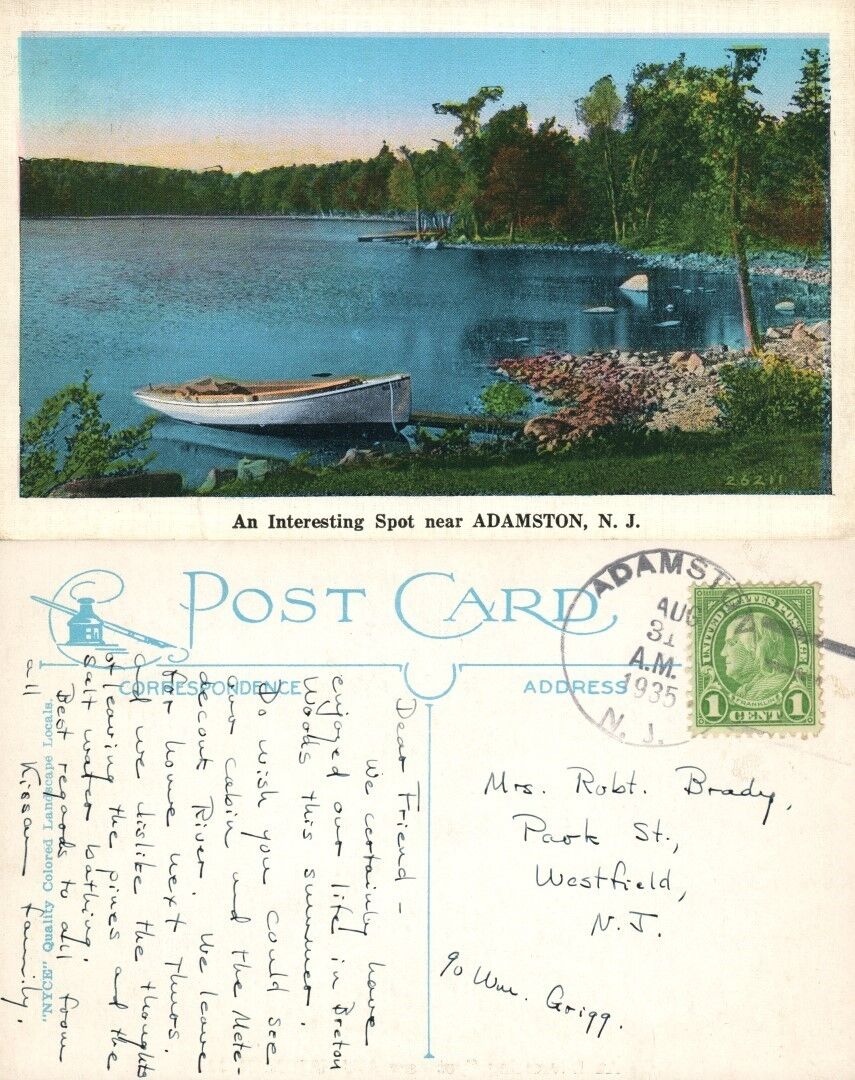 26211
An Interesting Spot near ADAMSTON, N. J.
POST CARD
CORRESPONDENCE
ADDRESS
ADAMST
AUG
31
A.M.
1935
N. J.
UNITED STATES POSTAGE
FRANKLIN
1 CENT 1
Dear Friend -
We certainly have
enjoyed our life in Breton
Woods this summer.
Do wish you could see
our cabin and the Mete-
deconk River. We leave
for home next Thurs.
and we dislike the thoughts
of leaving the pines and the
salt water bathing.
Best regards to all from
all Kissam Family.
Mrs. Robt. Brady,
Park St.,
Westfield,
N.J.
℅ Wm. Grigg.
"NYCE" Quality Colored Landscape Locals.